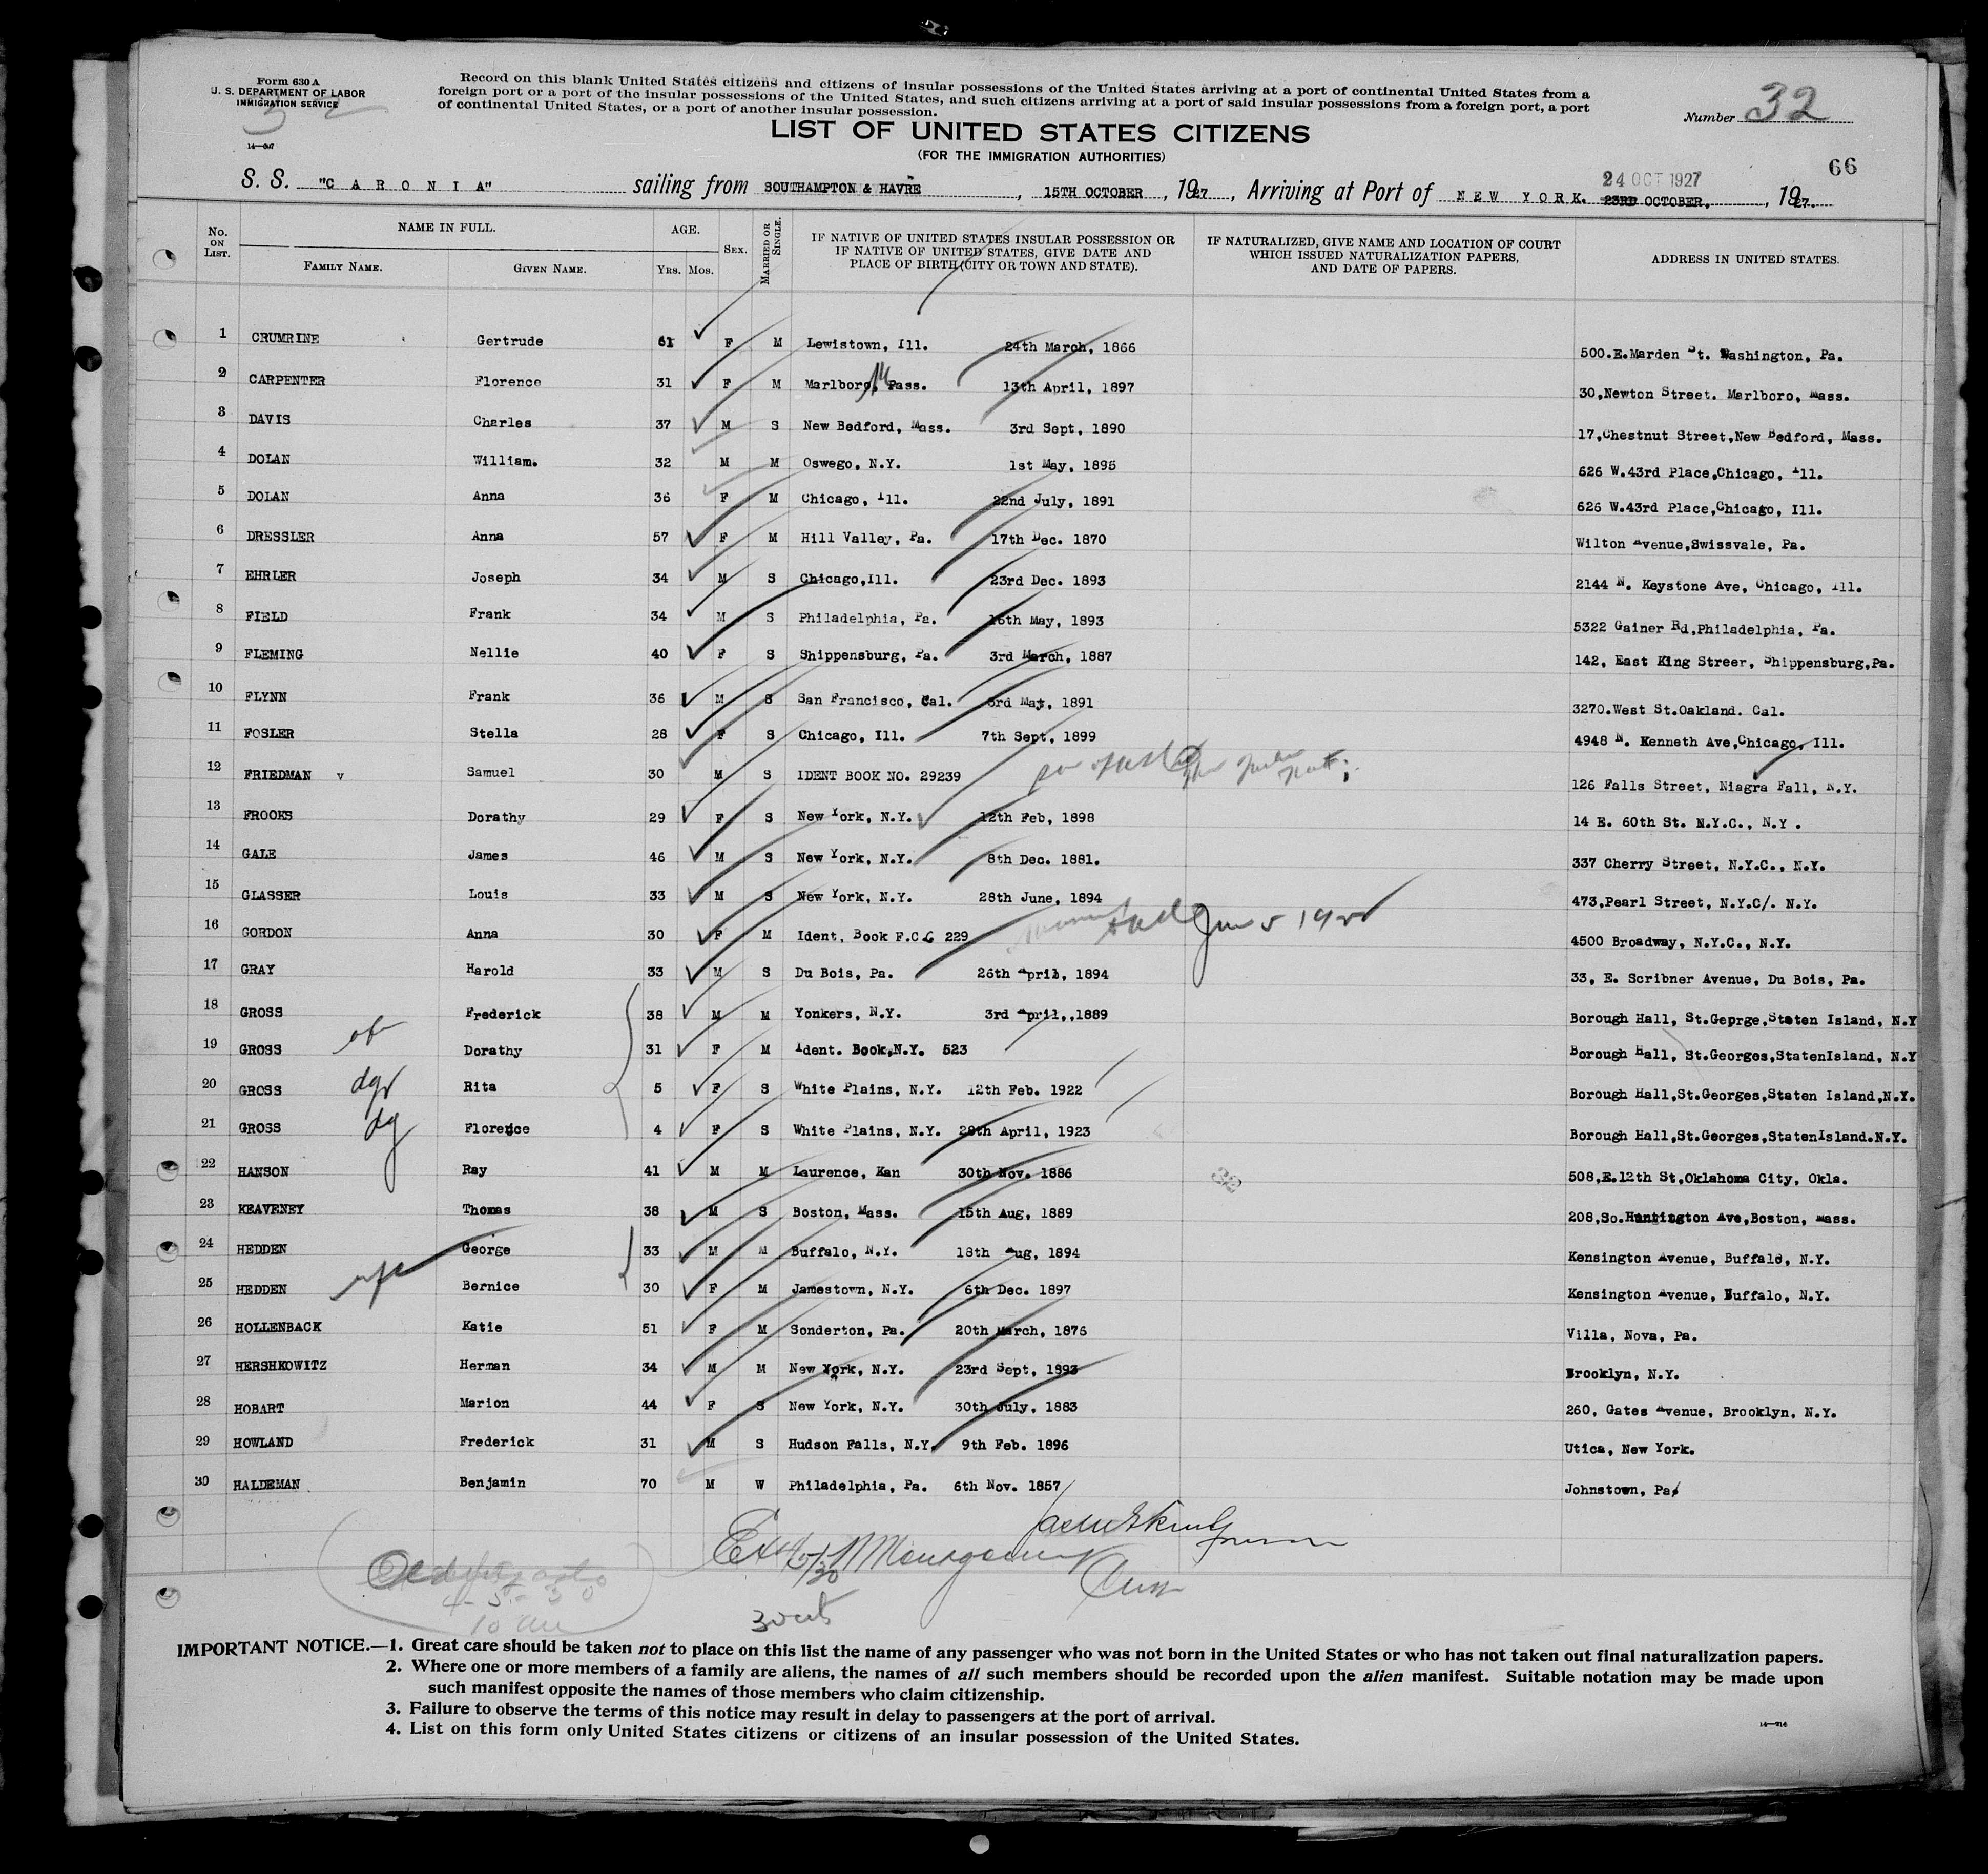 Form 630 A
U. S. DEPARTMENT OF LABOR
IMMIGRATION SERVICE
Record on this blank United States citizens and citizens of insular possessions of the United States arriving at a port of continental United States from a
foreign port or a port of the insular possessions of the United States, and such citizens arriving at a port of said insular possessions from a foreign port, a port
of continental United States, or a port of another insular possession.
Number 32
LIST OF UNITED STATES CITIZENS
(FOR THE IMMIGRATION AUTHORITIES)
66
S. S. "C A R O N I A" sailing from SOUTHAMPTON & HAVRE, 15TH OCTOBER, 1927, Arriving at Port of NEW YORK. 24 OCT 1927 23RD OCTOBER, 1927.
No. ON LIST. NAME IN FULL. FAMILY NAME. GIVEN NAME. AGE. YRS. MOS. SEX. MARRIED OR SINGLE. IF NATIVE OF UNITED STATES INSULAR POSSESSION OR IF NATIVE OF UNITED STATES, GIVE DATE AND PLACE OF BIRTH (CITY OR TOWN AND STATE). IF NATURALIZED, GIVE NAME AND LOCATION OF COURT WHICH ISSUED NATURALIZATION PAPERS, AND DATE OF PAPERS. ADDRESS IN UNITED STATES.
1 CRUMRINE Gertrude 61 F M Lewistown, Ill. 24th March, 1866 500.E.Marden St. Washington, Pa.
2 CARPENTER Florence 31 F M Marlboro, Pass. M 13th April, 1897 30,Newton Street. Marlboro, Mass.
3 DAVIS Charles 37 M S New Bedford, Mass. 3rd Sept, 1890 17,Chestnut Street,New Bedford, Mass.
4 DOLAN William. 32 M M Oswego, N.Y. 1st May, 1895 626 W.43rd Place,Chicago, Ill.
5 DOLAN Anna 36 F M Chicago, Ill. 22nd July, 1891 626 W.43rd Place,Chicago, Ill.
6 DRESSLER Anna 57 F M Hill Valley, Pa. 17th Dec. 1870 Wilton Avenue,Swissvale, Pa.
7 EHRLER Joseph 34 M S Chicago,Ill. 23rd Dec. 1893 2144 N. Keystone Ave, Chicago, Ill.
8 FIELD Frank 34 M S Philadelphia, Pa. 16th May, 1893 5322 Gainer Rd,Philadelphia, Pa.
9 FLEMING Nellie 40 F S Shippensburg, Pa. 3rd March, 1887 142, East King Streer, Shippensburg,Pa.
10 FLYNN Frank 36 M S San Francisco, Cal. 3rd May, 1891 3270.West St.Oakland. Cal.
11 FOSLER Stella 28 F S Chicago, Ill. 7th Sept, 1899 4948 N. Kenneth Ave,Chicago, Ill.
12 FRIEDMAN v Samuel 30 M S IDENT BOOK NO. 29239 126 Falls Street, Niagra Fall, N.Y.
13 FROOKS Dorathy 29 F S New York, N.Y. 12th Feb, 1898 14 E. 60th St. N.Y.C., N.Y.
14 GALE James 46 M S New York, N.Y. 8th Dec. 1881. 337 Cherry Street, N.Y.C., N.Y.
15 GLASSER Louis 33 M S New York, N.Y. 28th June, 1894 473,Pearl Street, N.Y.C/. N.Y.
16 GORDON Anna 30 F M Ident. Book F.C.C 229 4500 Broadway, N.Y.C., N.Y.
17 GRAY Harold 33 M S Du Bois, Pa. 26th April, 1894 33, E. Scribner Avenue, Du Bois, Pa.
18 GROSS Frederick 38 M M Yonkers, N.Y. 3rd April,,1889 Borough Hall, St.Geprge,Staten Island, N.Y
19 GROSS Dorathy 31 F M Ident. Book,N.Y. 523 Borough Hall, St.Georges,StatenIsland, N.Y
20 GROSS Rita 5 F S White Plains, N.Y. 12th Feb. 1922 Borough Hall,St.Georges,Staten Island,N.Y.
21 GROSS dg Florence 4 F S White Plains, N.Y. 28th April, 1923 Borough Hall,St.Georges,StatenIsland.N.Y.
22 HANSON Ray 41 M M Laurence, Kan 30th Nov. 1886 508,E.12th St,Oklahoma City, Okla.
23 KEAVENEY Thomas 38 M S Boston, Mass. 15th Aug, 1889 208,So.Huntington Ave,Boston, Mass.
24 HEDDEN George 33 M M Buffalo, N.Y. 18th Aug, 1894 Kensington Avenue, Buffalo, N.Y.
25 HEDDEN Bernice 30 F M Jamestown, N.Y. 6th Dec. 1897 Kensington Avenue, Buffalo, N.Y.
26 HOLLENBACK Katie 51 F M Sonderton, Pa. 20th March, 1876 Villa, Nova, Pa.
27 HERSHKOWITZ Herman 34 M M New York, N.Y. 23rd Sept, 1893 Brooklyn, N.Y.
28 HOBART Marion 44 F S New York, N.Y. 30th July, 1883 260, Gates Avenue, Brooklyn, N.Y.
29 HOWLAND Frederick 31 M S Hudson Falls, N.Y. 9th Feb. 1896 Utica, New York.
30 HALDEMAN Benjamin 70 M W Philadelphia, Pa. 6th Nov. 1857 Johnstown, Pa.
4-5-30
IMPORTANT NOTICE.—1. Great care should be taken not to place on this list the name of any passenger who was not born in the United States or who has not taken out final naturalization papers.
2. Where one or more members of a family are aliens, the names of all such members should be recorded upon the alien manifest. Suitable notation may be made upon
such manifest opposite the names of those members who claim citizenship.
3. Failure to observe the terms of this notice may result in delay to passengers at the port of arrival.
4. List on this form only United States citizens or citizens of an insular possession of the United States.